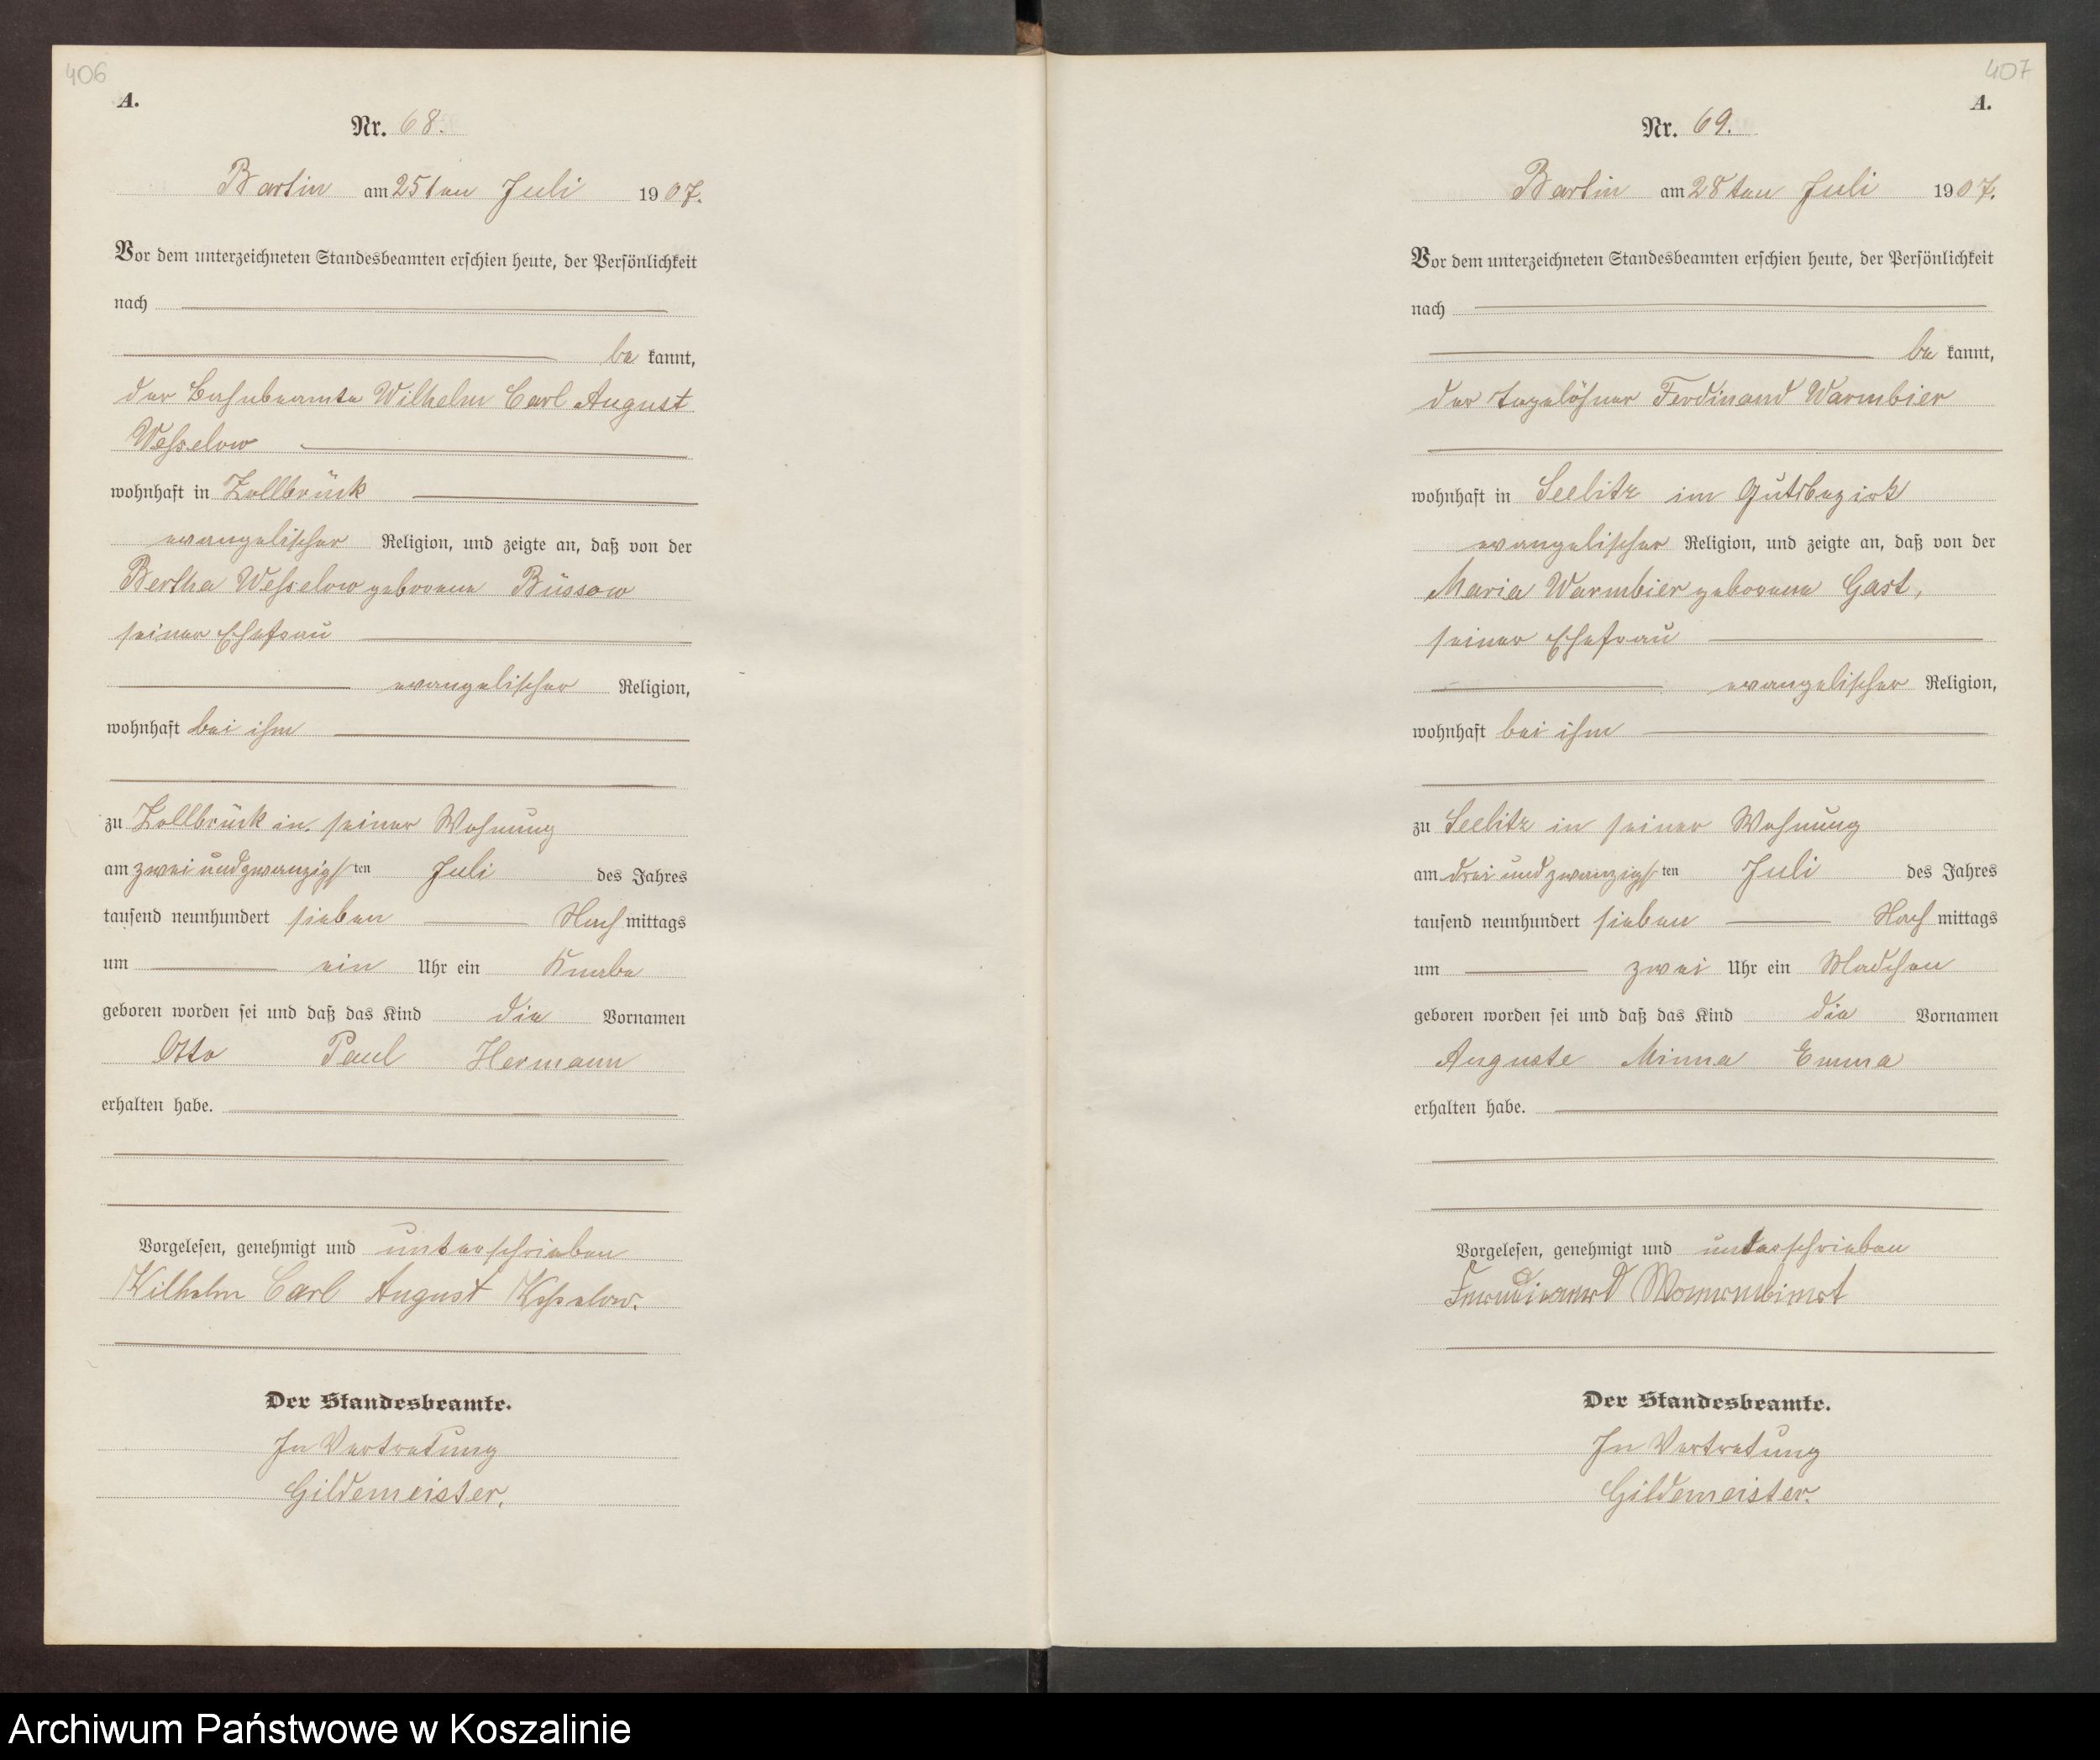 406
A.
Nr. 68.
Bartin am 25ten Juli 1907.
Vor dem unterzeichneten Standesbeamten erschien heute, der Persönlichkeit
nach
be kannt,
der Bahnbeamte Wilhelm Carl August
Wesselow
wohnhaft in Zollbrück
evangelischer Religion, und zeigte an, daß von der
Bertha Wesselow geborene Büssow
seiner Ehefrau
evangelischer Religion,
wohnhaft bei ihm
zu Zollbrück in seiner Wohnung
am zwei und zwanzigsten Juli des Jahres
tausend neunhundert sieben Nachmittags
um ein Uhr ein Knabe
geboren worden sei und daß das Kind die Vornamen
Otto Paul Hermann
erhalten habe.
Vorgelesen, genehmigt und unterschrieben
Wilhelm Carl August Wesselow.
Der Standesbeamte.
In Vertretung
Gildemeister.
407
A.
Nr. 69.
Bartin am 28ten Juli 1907.
Vor dem unterzeichneten Standesbeamten erschien heute, der Persönlichkeit
nach
be kannt,
der Tagelöhner Ferdinand Warmbier
wohnhaft in Seelitz im Gutsbezirk
evangelischer Religion, und zeigte an, daß von der
Maria Warmbier geborene Gast,
seiner Ehefrau
evangelischer Religion,
wohnhaft bei ihm
zu Seelitz in seiner Wohnung
am drei und zwanzigsten Juli des Jahres
tausend neunhundert sieben Nachmittags
um zwei Uhr ein Mädchen
geboren worden sei und daß das Kind die Vornamen
Auguste Minna Emma
erhalten habe.
Vorgelesen, genehmigt und unterschrieben
Der Standesbeamte.
In Vertretung
Gildemeister.
Archiwum Państwowe w Koszalinie